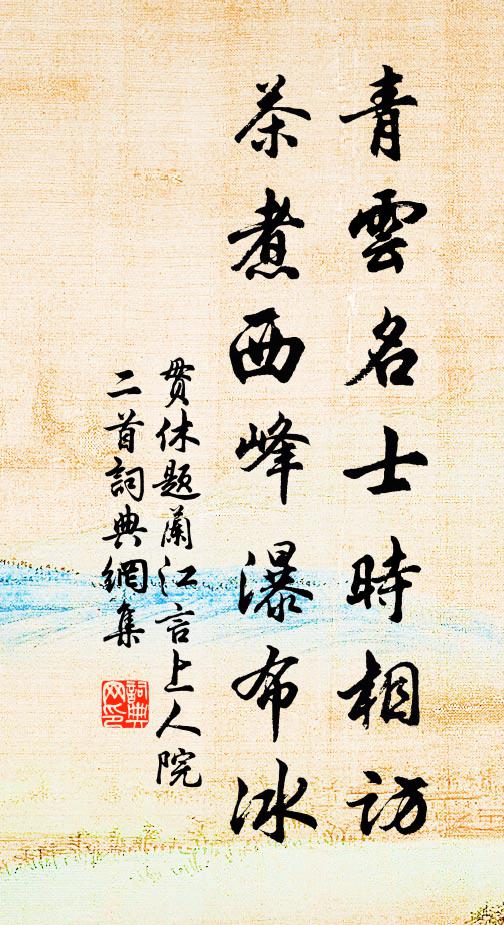 青雲名士時相訪
茶煮西峰瀑布冰
貫休題蘭江言上人院
二首詞典網集
詞典
网印